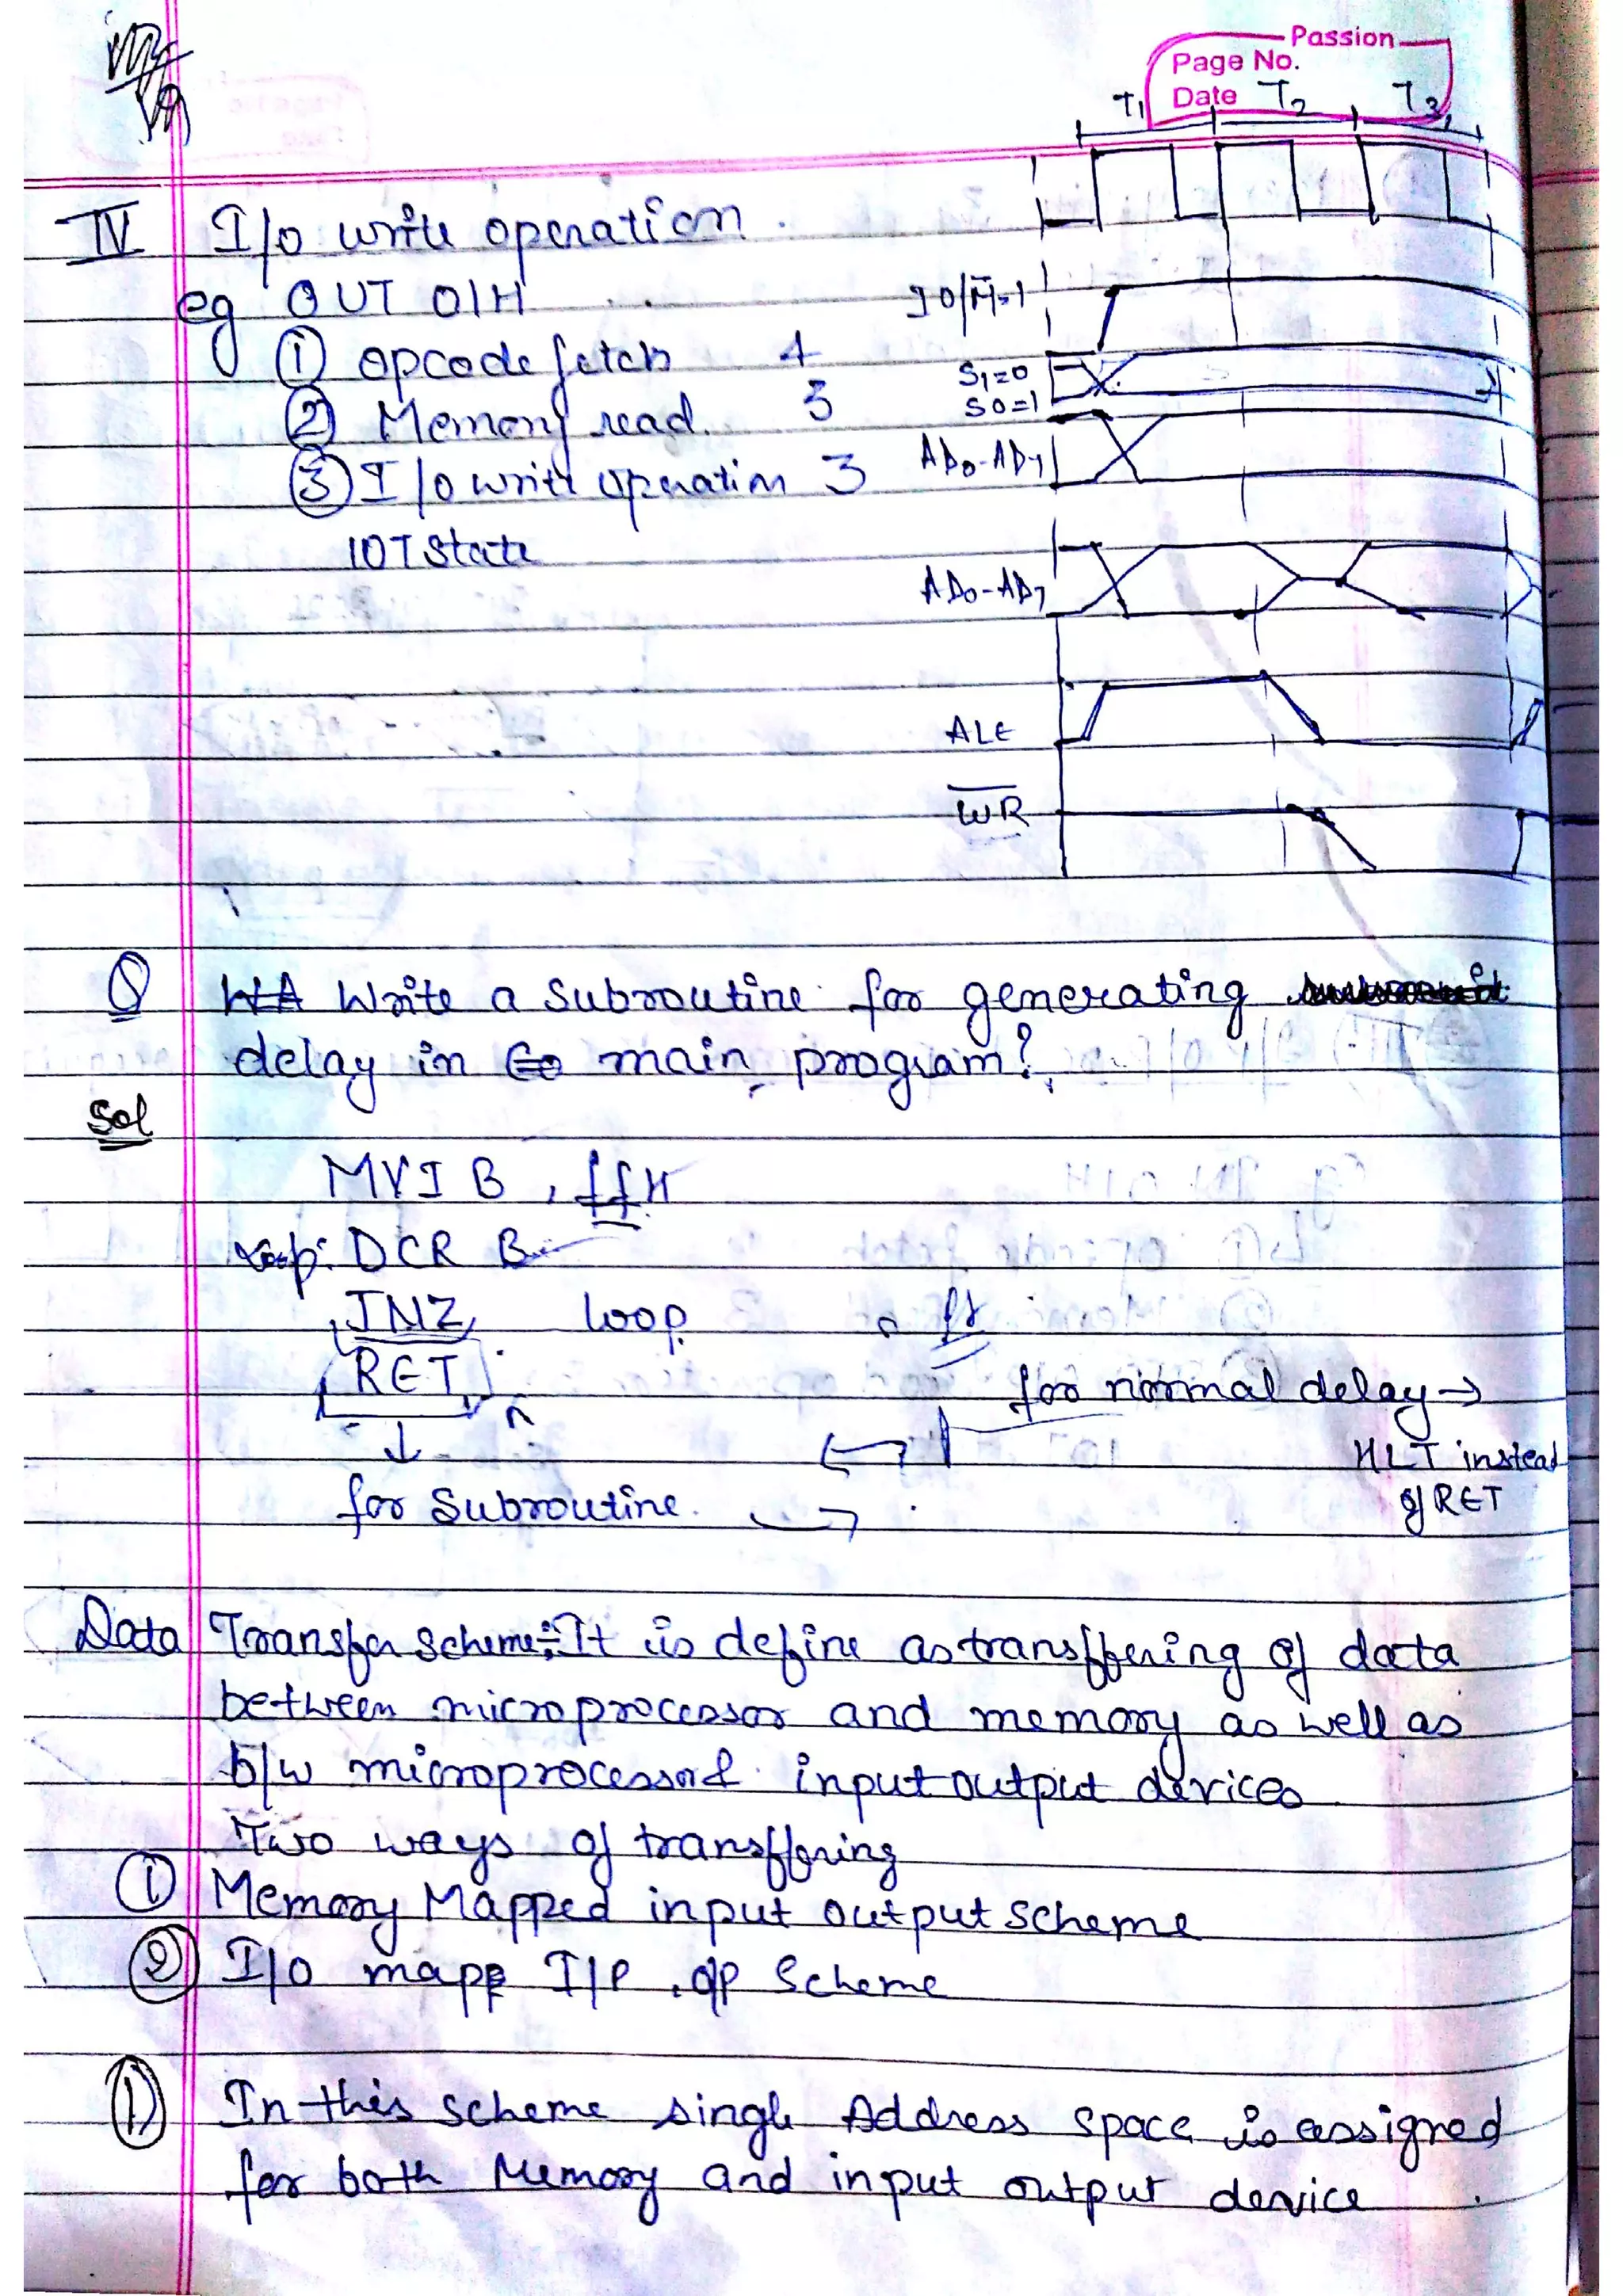 Passion
Page No.
Date
T1 T2 T3
IV I/o write operation.
eg OUT 01H
① opcode fetch 4
② Memory read. 3
③ I/o write operation 3
10T State
IO/M̅=1
S1=0
S0=1
AD0-AD7
AD0-AD7
ALE
W̅R̅
Q Write a subroutine for generating
delay in main program?
Sol
MVI B, ffH
loop: DCR B
JNZ loop
RET
for normal delay→
HLT instead
of RET
↓
for subroutine.
Data Transfer scheme:- It is define as transffering of data
between microprocessor and memory as well as
b/w microprocessor & input output devices
Two ways of transffering
① Memory Mapped input output scheme
② I/O mapp I/P, o/p Scheme
① In this scheme single Address space is assigned
for both Memory and input output device.